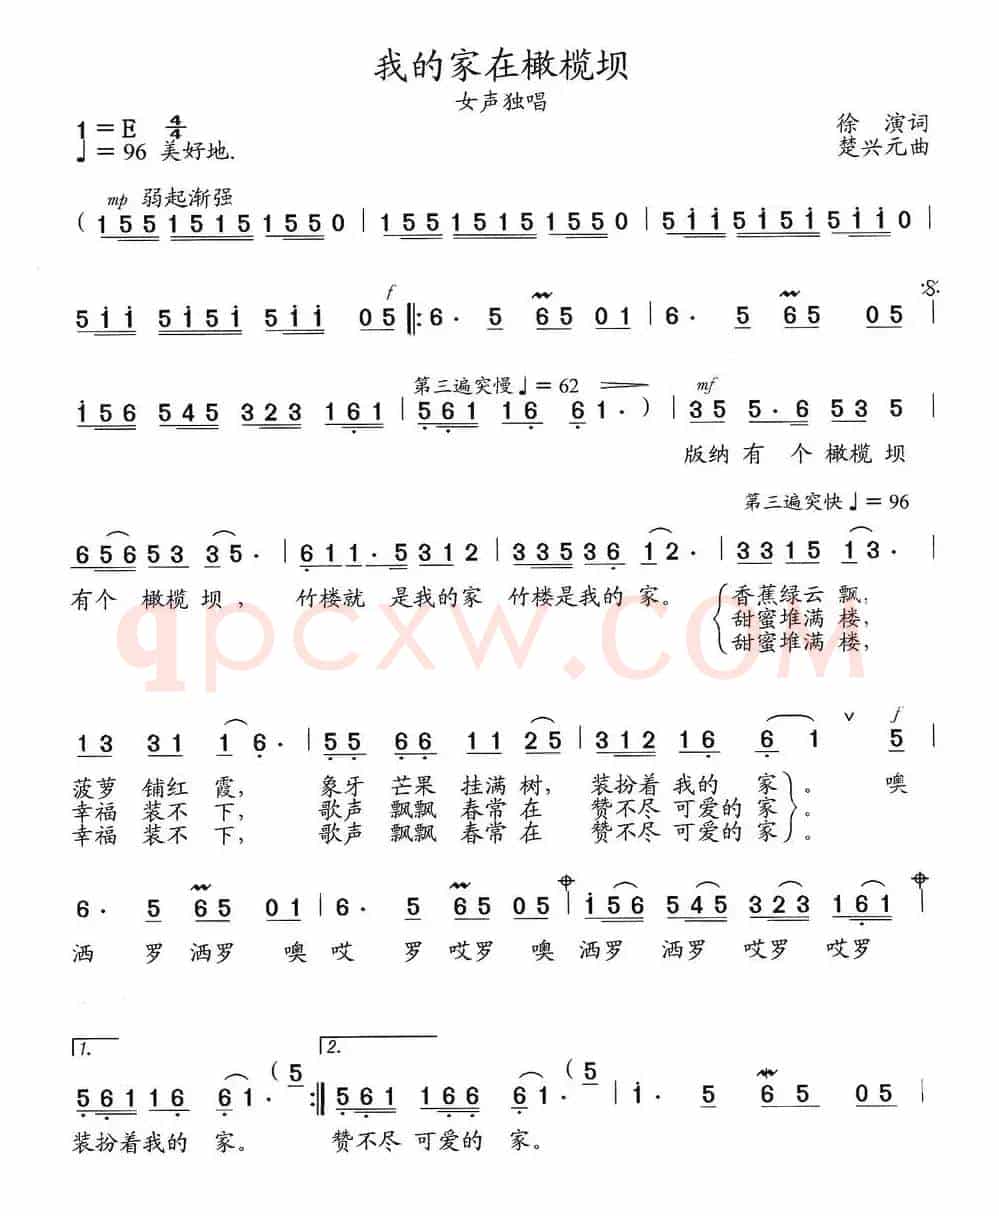 我的家在橄榄坝
女声独唱
1=E 4/4
♩=96 美好地.
徐 演词
楚兴元曲
mp 弱起渐强
(155 1515 1550 | 155 1515 1550 | 5ii 5i5i 5ii0 |
f
5ii 5i5i 5ii 05 ‖: 6. 5 65 01 | 6. 5 65 05 |
第三遍突慢♩=62 mf
i56 545 323 161 | 561 16 61. ) | 35 5.6 53 5 |
版纳 有 个 橄榄 坝
第三遍突快♩=96
656 53 35. | 611. 5312 | 335 36 12. | 3315 13. |
有个 橄榄 坝, 竹楼就 是我的家 竹楼是我的家。 香蕉绿云 飘,
甜蜜堆满 楼,
甜蜜堆满 楼,
qpcxw.COM
f
13 31 16. | 55 66 11 25 | 312 16 61 5 |
菠萝 铺红 霞, 象牙 芒果 挂满 树, 装扮着 我的 家。 噢
幸福 装不 下, 歌声 飘飘 春常 在 赞不尽 可爱的 家。
幸福 装不 下, 歌声 飘飘 春常 在 赞不尽 可爱的 家。
6. 5 65 01 | 6. 5 65 05 | i56 545 323 161 |
洒 罗 洒罗 噢 哎 罗 哎罗 噢 洒罗 洒罗 哎罗 哎罗
1. 2.
561 116 61. (5 :‖ 561 166 61. (5 | i. 5 65 05 |
装扮着我的 家。 赞不尽 可爱的 家。